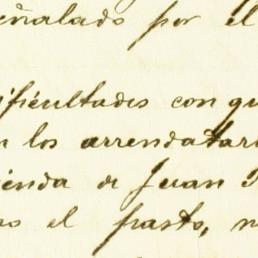 señalado por el
dificultades con qu
n los arrendatari
ienda de Juan
el pasto,